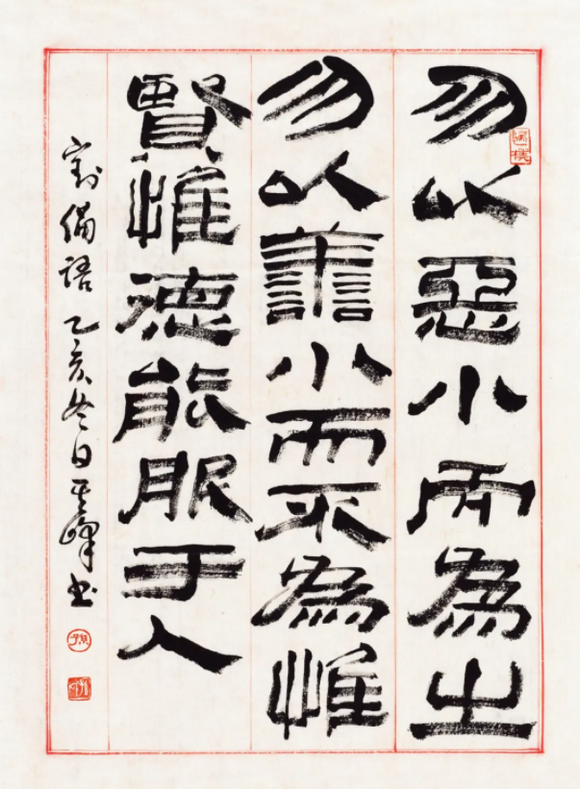 勿以惡小而為之
勿以譱小而不為惟
賢惟德能服于人
劉備語 乙亥冬日其峰书